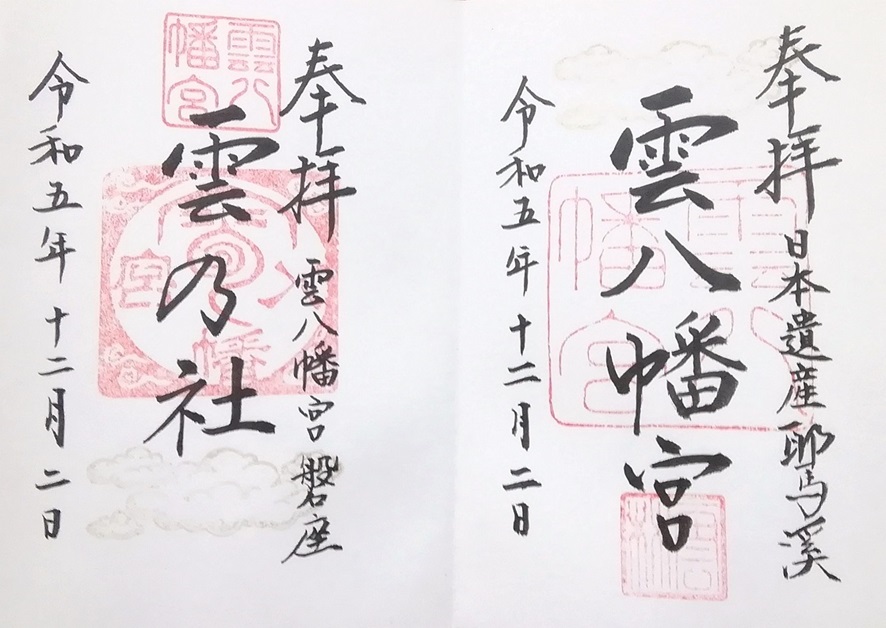 奉拝
日本遺産耶馬溪
雲八幡宮
令和五年十二月二日
雲八幡宮
奉拝
雲八幡宮磐座
雲乃社
令和五年十二月二日
雲八幡宮
雲八幡宮